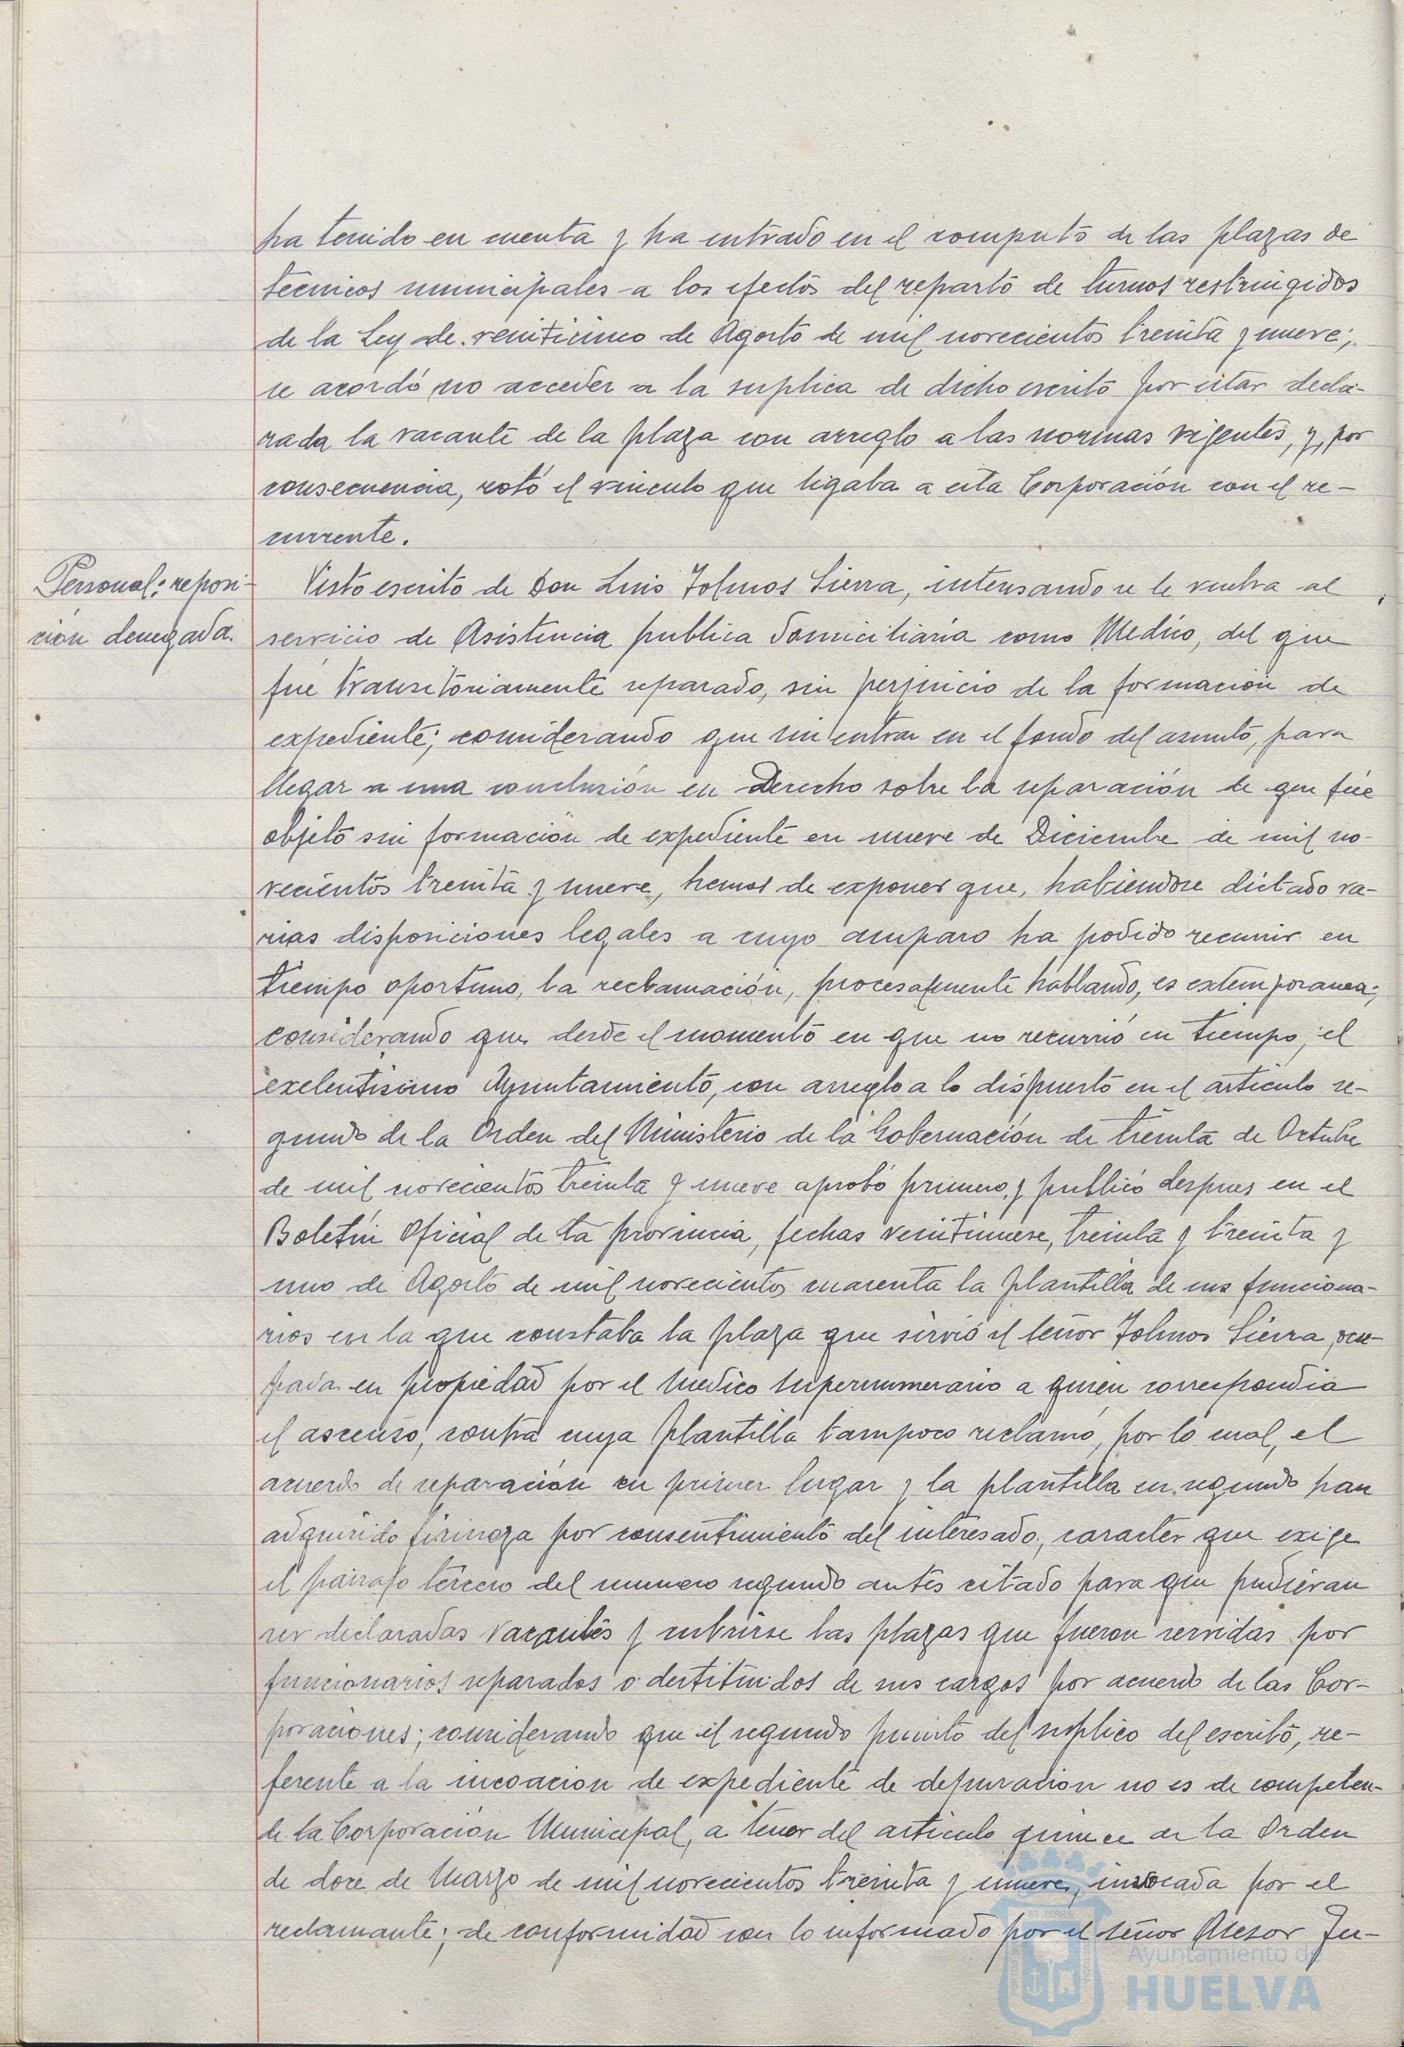 ha tenido en cuenta y ha entrado en el computo de las plazas de
tecnicos municipales a los efectos del reparto de turnos restringidos
de la Ley de veniticinco de Agosto de mil novecientos treinta y nueve;
se acordó no acceder a la suplica de dicho escrito por estar decla-
rada la vacante de la plaza con arreglo a las normas vigentes, y, por
consecuencia, roto el vinculo que ligaba a esta Corporación con el re-
currente.
Personal: reposi-
ción denegada.
Visto escrito de Don Luis Tolmos Sierra, interesando se le vuelva al
servicio de Asistencia publica domiciliaria como Medico, del que
fué transitoriamente separado, sin perjuicio de la formacion de
expediente; considerando que sin entrar en el fondo del asunto, para
llegar a una conclusión en Derecho sobre la separación de que fúe
objeto sin formación de expediente en nueve de Diciembre de mil no-
vecientos treinta y nueve, hemos de exponer que, habiendose dictado va-
rias disposiciones legales a cuyo amparo ha podido recurrir en
tiempo oportuno, la reclamación, procesalmente hablando, es extemporanea;
considerando que desde el momento en que no recurrió en tiempo, el
exelentisimo Ayuntamiento, con arreglo a lo dispuesto en el articulo se-
gundo de la Orden del Ministerio de la Gobernación de treinta de Octubre
de mil novecientos treinta y nueve aprobó primero, y publicó despues en el
Boletín Oficial de la provincia, fechas venitinueve, treinta y treinta y
uno de Agosto de mil novecientos cuarenta la plantilla de sus funciona-
rios en la que constaba la plaza que sirvió el señor Tolmos Sierra, ocu-
pada en propiedad por el Medico supernumerario a quien correspondia
el ascenso, contra cuya plantilla tampoco reclamó, por lo cual, el
acuerdo de separación en primer lugar y la plantilla en segundo han
adquirido firmeza por consentimiento del interesado, caracter que exige
el parrafo tercero del numero segundo antes citado para que pudieran
ser declaradas vacantes y cubrirse las plazas que fueron servidas por
funcionarios separados o destituidos de sus cargos por acuerdo de las Cor-
poraciones; considerando que el segundo punto del suplico del escrito, re-
ferente a la incoacion de expediente de depuracion no es de competen-
de la Corporación Municipal, a tenor del articulo quince de la Orden
de doce de Marzo de mil novecientos treinta y nueve, invocada por el
reclamante; de conformidad con lo informado por el señor Asesor Ju-
Ayuntamiento de
HUELVA